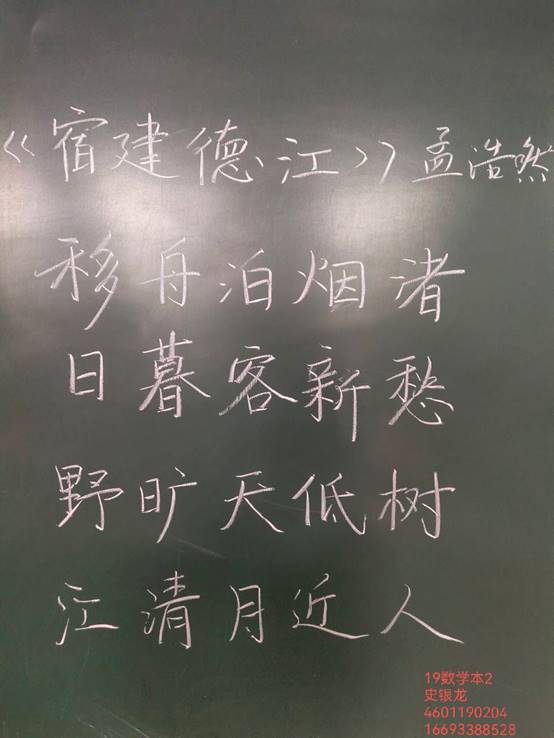 《宿建德江》孟浩然
移舟泊烟渚
日暮客新愁
野旷天低树
江清月近人
19数学本2
史银龙
4601190204
16693388528